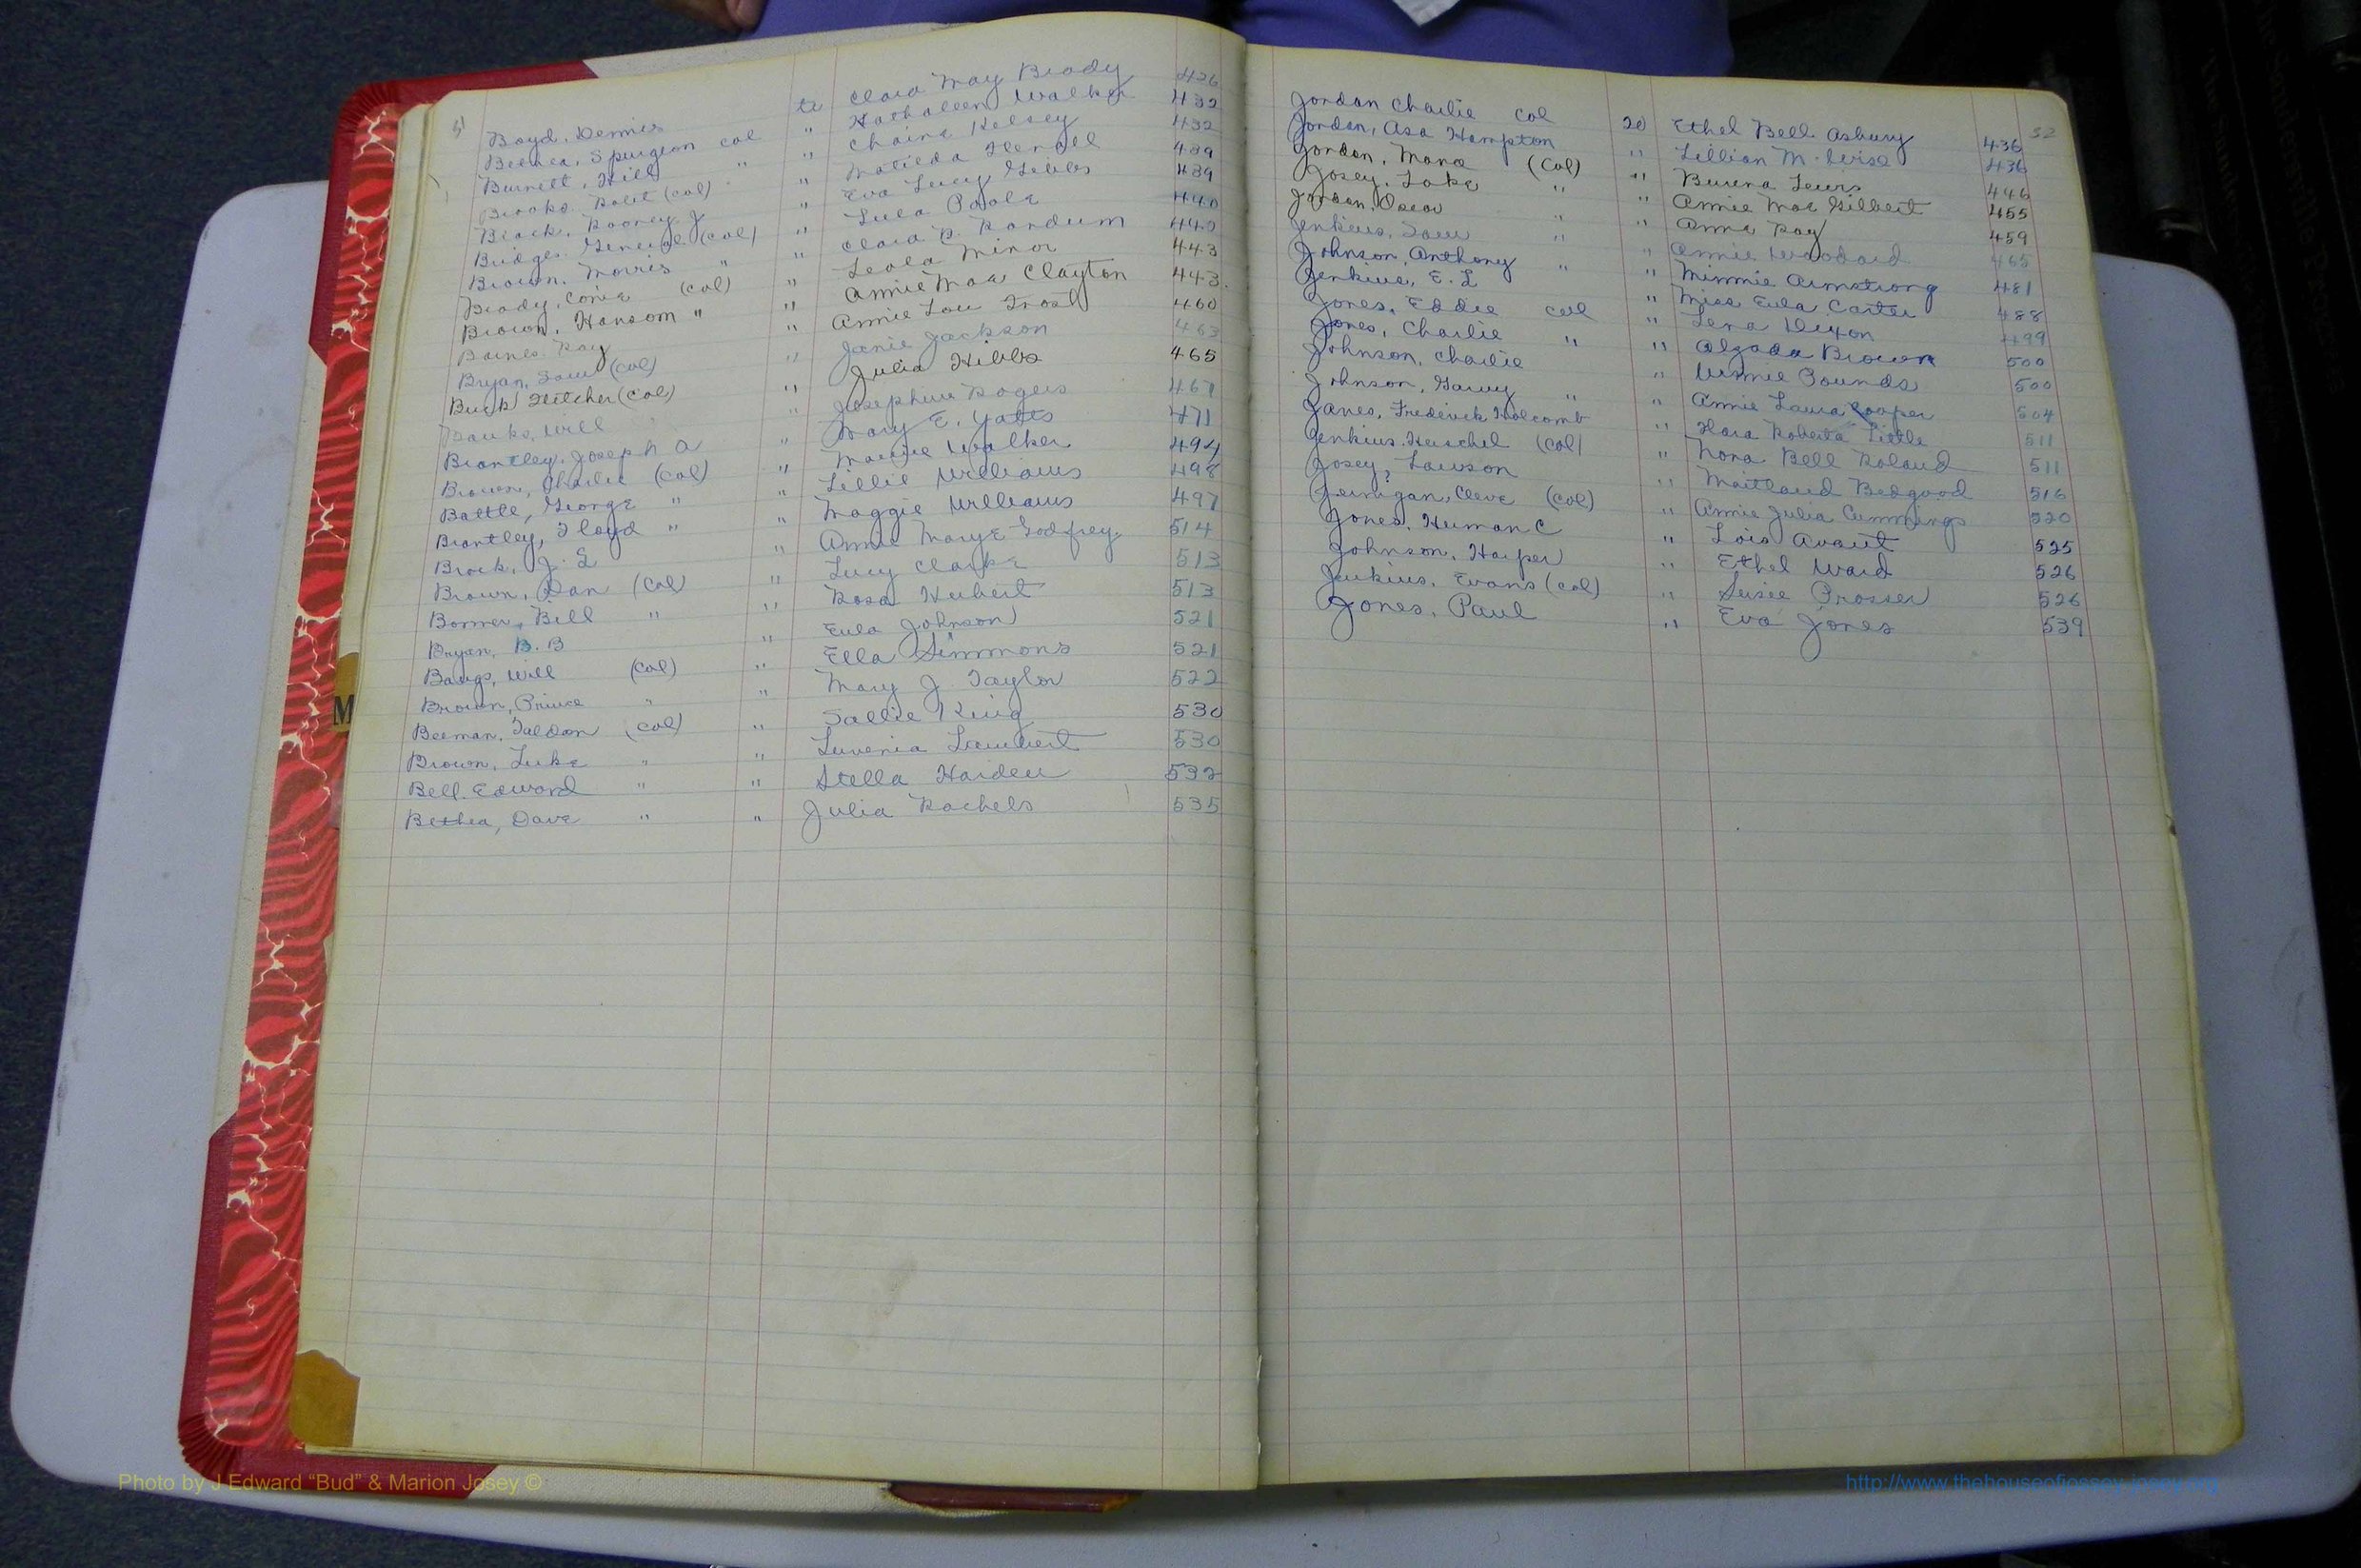 51
Boyd, Dennis te Clara May Brady 426
Bethea, Spurgeon col " Kathaleen Walker 432
Burnett, Hill " " Chaire Kelsey 432
Brooks, Robt (Col) " Matilda 439
Brack, Rooney J " Eva Lucy Gibbs 439
Bridges, General (Col) " Lula Poole 440
Brown, Morris " " Clara B. Randum 440
Brady, Conie (Col) " Leola Minor 443
Brown, Hansom " " Annie Mae Clayton 443
Barnes, Ray " Annie Lou Frost 460
Bryan, Sam (Col) " Janie Jackson 463
Buck Fletcher (Col) " Julia Hibbs 465
Banks, Will " Josephine Rogers 467
Brantley, Joseph A " Mary E. Yates 471
Brown, Charlie (Col) " Walker 494
Battle, George " " Lillie Williams 498
Brantley, Floyd " " Maggie Williams 497
Brock, J. L " Annie Mary E Godfrey 514
Brown, Dan (Col) " Lucy Clarke 513
Bonner, Bill " " Rosa Hubert 513
Bryan, B. B " Eula Johnson 521
Bangs, Will (Col) " Ella Simmons 521
Brown, Prince " " Mary J Taylor 522
Beeman, Taldon (Col) " Sallie King 530
Brown, Luke " " Luvenia Lambert 530
Bell, Edward " " Stella Harden 532
Bethea, Dave " " Julia Rachels 535
M
52
Jordan Charlie Col to Ethel Bell Asbury 436
Jordan, Asa Hampton " Lillian M. Wise 436
Jordan, Mana (Col) " Buena Lewis 446
Josey, Lake " " Annie Mae Gilbert 455
Jordan, Oscar " " Anna Ray 459
Jenkins, Sam " " Annie Woodard 465
Johnson, Anthony " " Minnie Armstrong 481
Jenkins, E. L " Miss Eula Carter 488
Jones, Eddie col " Lena Dixon 499
Jones, Charlie " " Algada Brown 500
Johnson, Charlie " Minnie Pounds 500
Johnson, Garvy " " Annie Laura Cooper 504
Janes, Frederick Holcomb " Flora Roberta Little 511
Jenkins, Herschel (Col) " Nora Bell Roland 511
Josey, Lawson " Maitland Bedgood 516
Jernigan, Cleve (Col) " Annie Julia Cummings 520
Jones, Human C " Lois Avant 525
Johnson, Harper " Ethel Ward 526
Jenkins, Evans (Col) " Susie Prosser 526
Jones, Paul " Eva Jones 539
Photo by J Edward “Bud” & Marion Josey ©
http://www.thehouseofjossey-josey.org